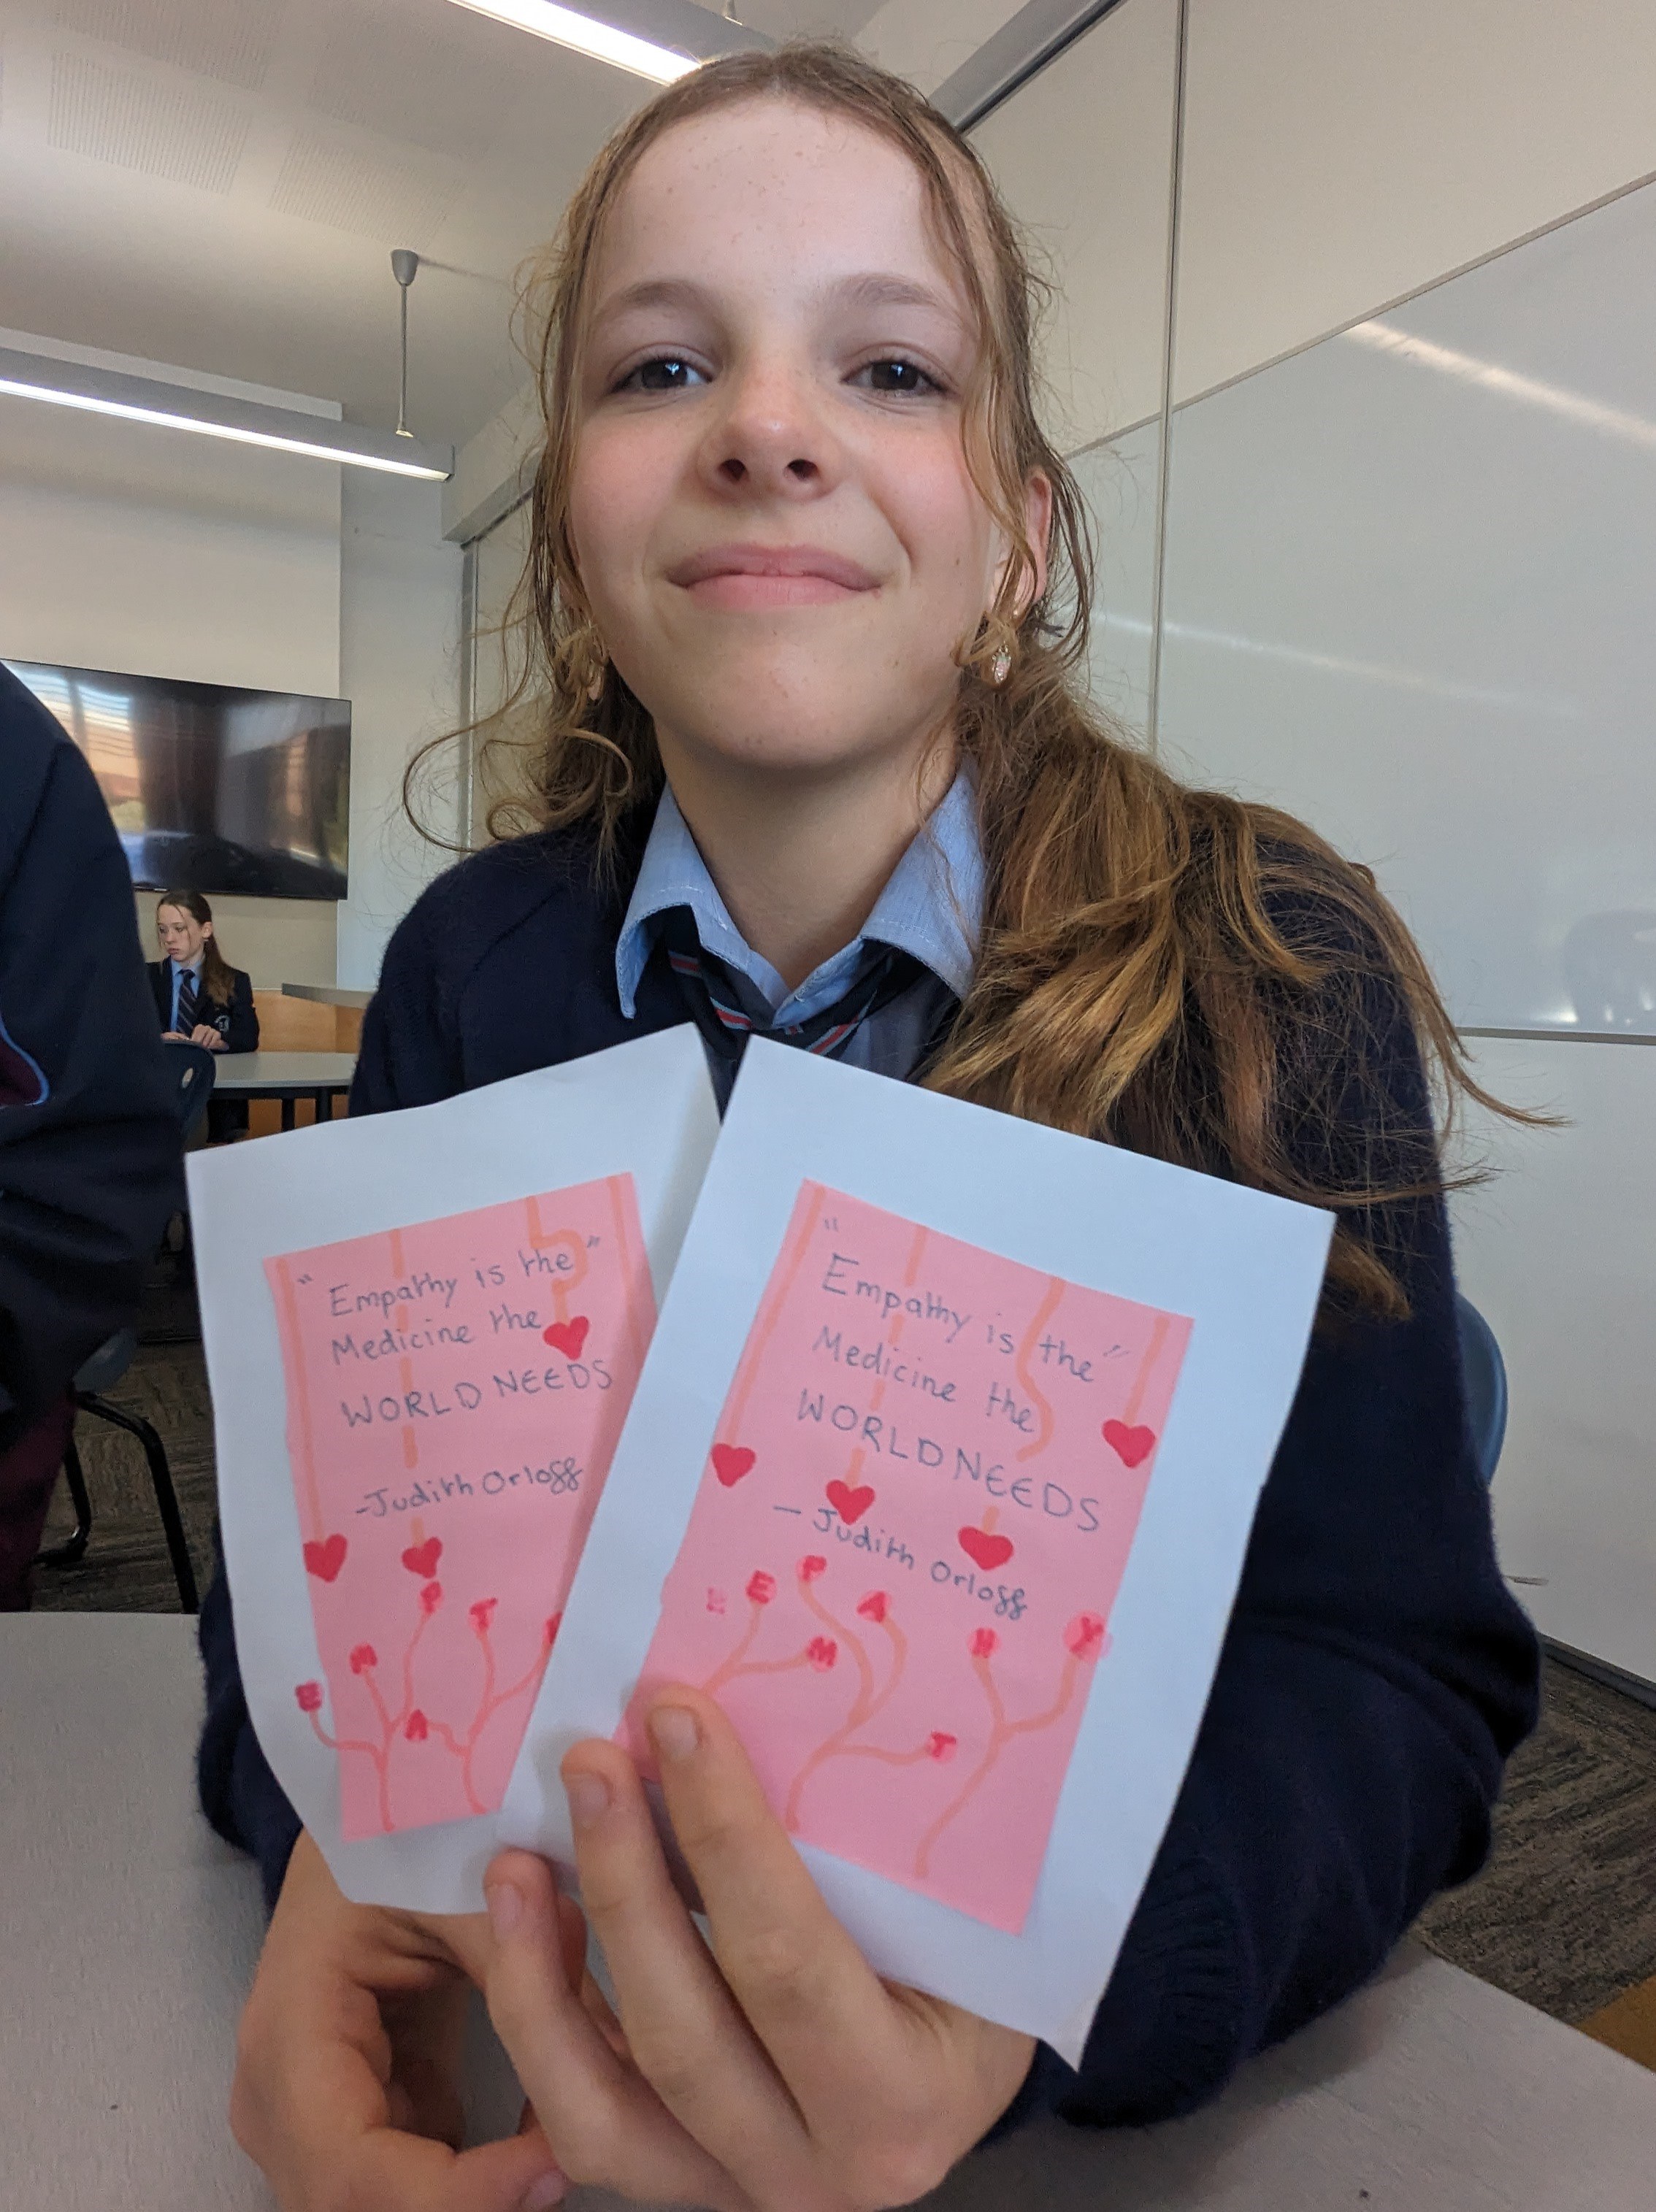 " Empathy is the "
Medicine the
WORLD NEEDS
-Judith Orloff
E M P A T
" Empathy is the "
Medicine the
WORLD NEEDS
- Judith Orloff
E M P A T H Y